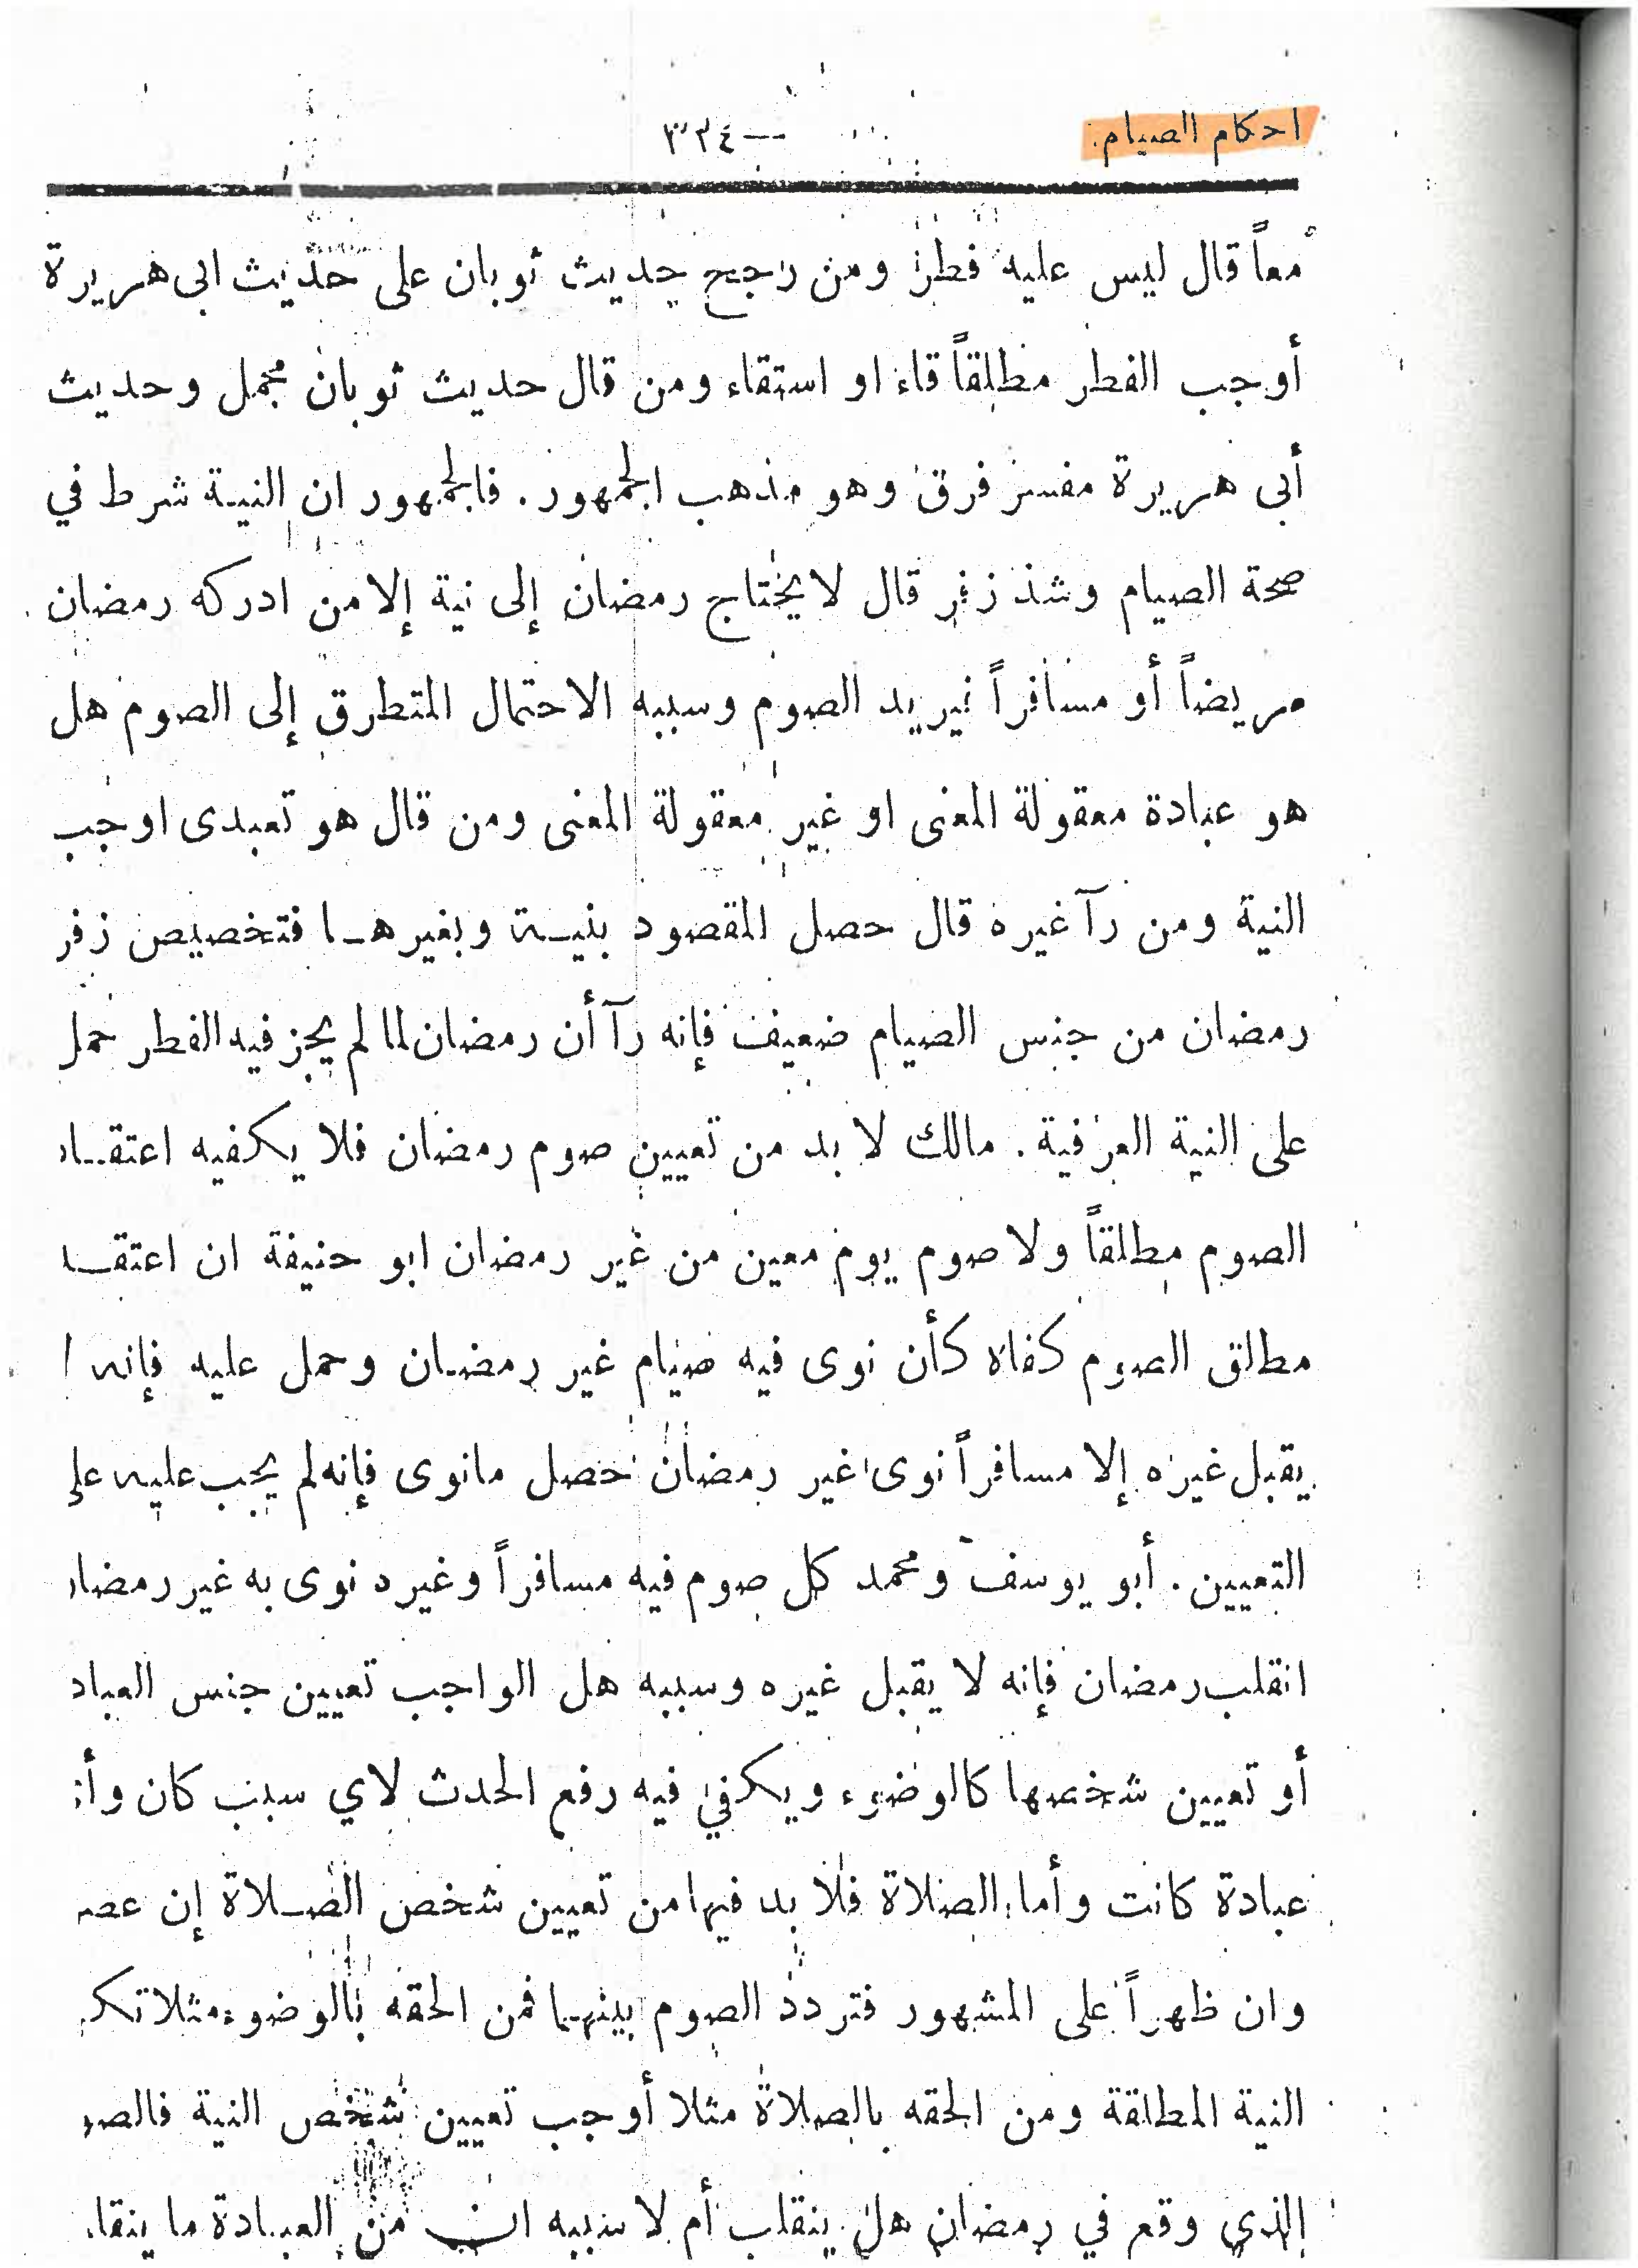 احكام الصيام.
— ٣٣٤
معاً قال ليس عليه فطر ومن رجح حديث ثوبان على حديث ابى هريرة
أوجب الفطر مطلقاً قاء او استقاء ومن قال حديث ثوبان مجمل وحديث
أبى هريرة مفسر فرق وهو مذهب الجمهور . فالجمهور ان النية شرط في
صحة الصيام وشذ زفر قال لا يحتاج رمضان إلى نية إلا من ادركه رمضان
مريضاً أو مسافراً يريد الصوم وسببه الاحتمال المتطرق إلى الصوم هل
هو عبادة معقولة المعنى او غير معقولة المعنى ومن قال هو تعبدى اوجب
النية ومن رآ غيره قال حصل المقصود بنيـة وبغيرهـا فتخصيص زفر
رمضان من جنس الصيام ضعيف فإنه رآ أن رمضان لما لم يجز فيه الفطر حمل
على النية العرفية . مالك لا بد من تعيين صوم رمضان فلا يكفيه اعتقـا
الصوم مطلقاً ولا صوم يوم معين من غير رمضان ابو حنيفة ان اعتقـ
مطلق الصوم كفاه كأن نوى فيه صيام غير رمضـان وحمل عليه فإنه
يقبل غيره إلا مسافراً نوى غير رمضان حصل مانوى فإنه لم يجب عليه على
التعيين . أبو يوسف ومحمد كل صوم فيه مسافراً وغيره نوى به غير رمضا
انقلب رمضان فإنه لا يقبل غيره وسببه هل الواجب تعيين جنس العباد
أو تعيين شخصها كالوضوء ويكفي فيه رفع الحدث لاي سبب كان وأ
عبادة كانت وأما الصلاة فلا بد فيها من تعيين شخص الصـلاة إن عصـ
وان ظهراً على المشهور فتردد الصوم بينهـما فمن الحقه بالوضوء مثلا تكـ
النية المطلقة ومن الحقه بالصلاة مثلا أوجب تعيين شخص النية فالصو
الذي وقع في رمضان هل ينقلب أم لا سببه ان من العبـادة ما ينقا